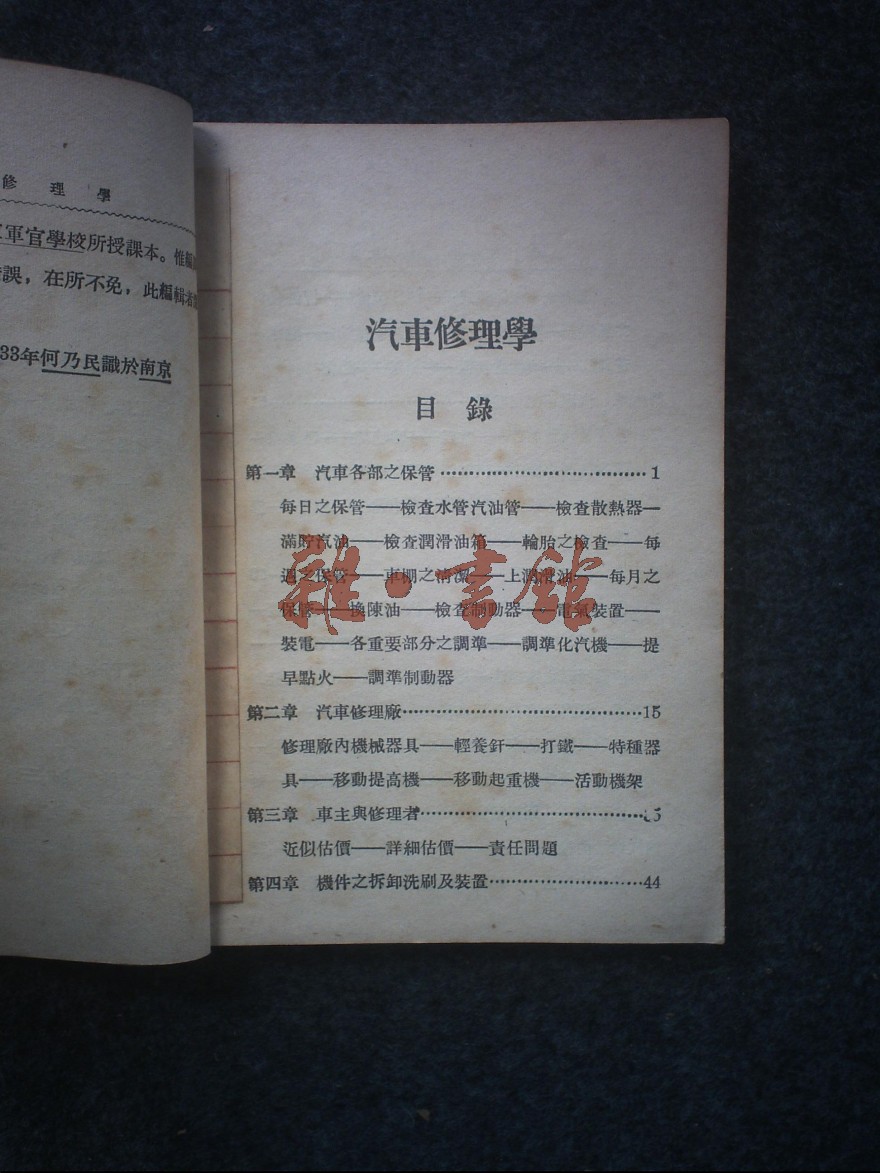 修理學
軍官學校所授課本。惟
誤，在所不免，此編輯者
33年何乃民識於南京
汽車修理學
目錄
第一章 汽車各部之保管……………………………1
每日之保管——檢查水管汽油管——檢查散熱器—
滿貯汽油——檢查潤滑油箱——輪胎之檢查——每
週之保管——車棚之清潔——上潤滑油——每月之
保管——換陳油——檢查制動器——電氣裝置——
裝電——各重要部分之調準——調準化汽機——提
早點火——調準制動器
第二章 汽車修理廠……………………………15
修理廠內機械器具——輕養釬——打鐵——特種器
具——移動提高機——移動起重機——活動機架
第三章 車主與修理者……………………………5
近似估價——詳細估價——責任問題
第四章 機件之拆卸洗刷及裝置……………………44
雜·書館